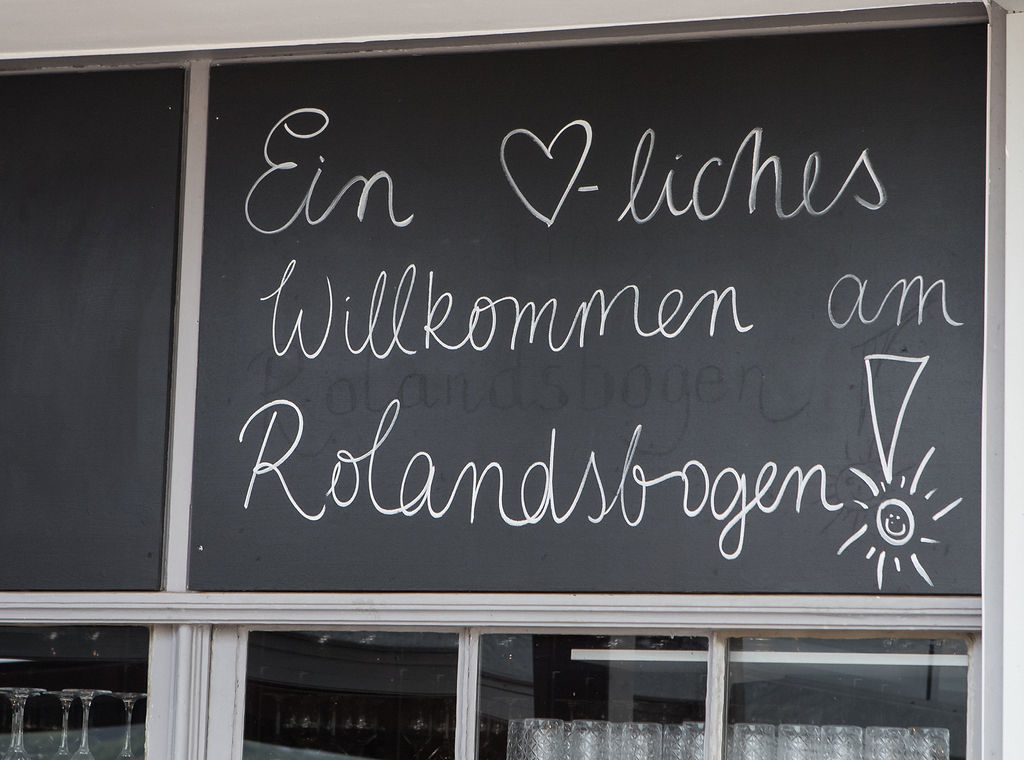 Ein ♡-liches
Willkommen am
Rolandsbogen!